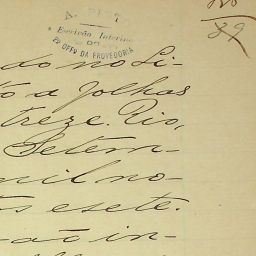 89
Escrivão Interino
DO
2º OFFº DA PROVEDORIA
do no Li-
a folhas
treze. Rio,
Setem-
mil no-
e sete.
não in-